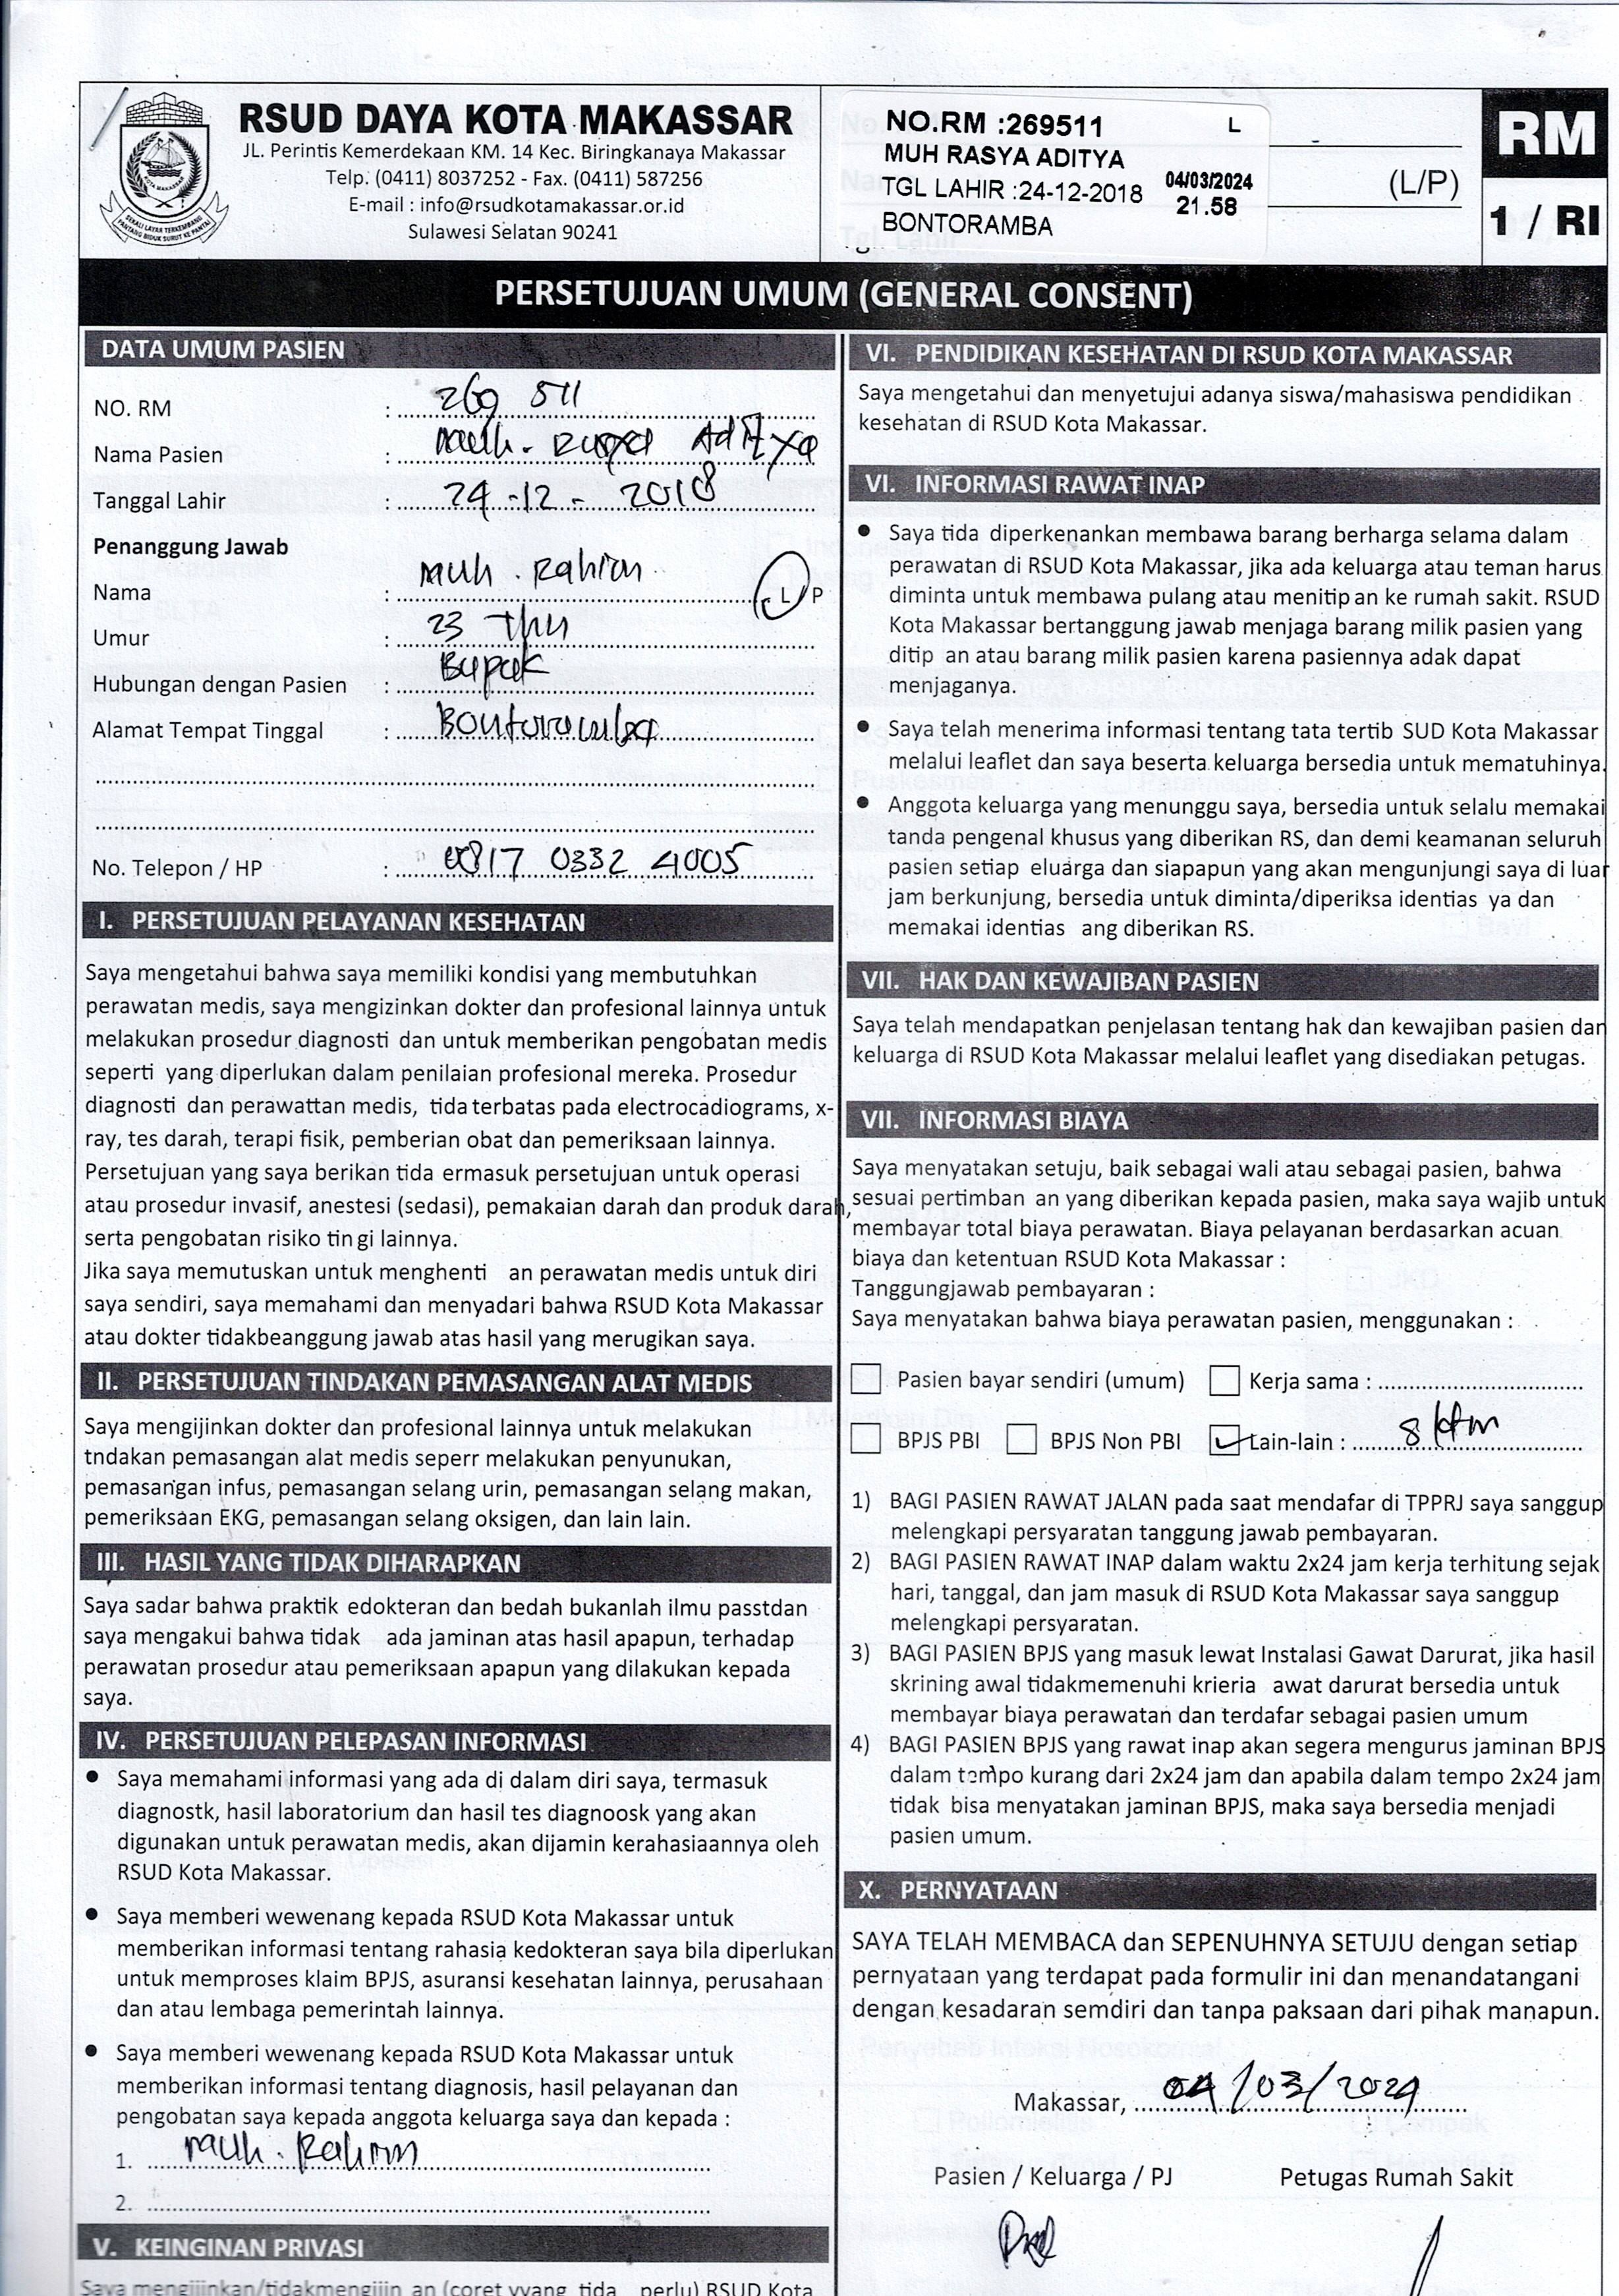 RSUD DAYA KOTA MAKASSAR
JL. Perintis Kemerdekaan KM. 14 Kec. Biringkanaya Makassar
Telp. (0411) 8037252 - Fax. (0411) 587256
E-mail : info@rsudkotamakassar.or.id
Sulawesi Selatan 90241
NO.RM :269511 L
MUH RASYA ADITYA
TGL LAHIR :24-12-2018 04/03/2024
21.58
BONTORAMBA
(L/P)
RM
1 / RI
PERSETUJUAN UMUM (GENERAL CONSENT)
DATA UMUM PASIEN
NO. RM : 269 511
Nama Pasien : Muh. Rasya Aditya
Tanggal Lahir : 24-12-2018
Penanggung Jawab
Nama : Muh. Rahim L/P
Umur : 23 thn
Hubungan dengan Pasien : Bapak
Alamat Tempat Tinggal : Bontoramba
No. Telepon / HP : 0817 0332 4005
I. PERSETUJUAN PELAYANAN KESEHATAN
Saya mengetahui bahwa saya memiliki kondisi yang membutuhkan
perawatan medis, saya mengizinkan dokter dan profesional lainnya untuk
melakukan prosedur diagnosti dan untuk memberikan pengobatan medis
seperti yang diperlukan dalam penilaian profesional mereka. Prosedur
diagnosti dan perawattan medis, tida terbatas pada electrocadiograms, x-
ray, tes darah, terapi fisik, pemberian obat dan pemeriksaan lainnya.
Persetujuan yang saya berikan tida ermasuk persetujuan untuk operasi
atau prosedur invasif, anestesi (sedasi), pemakaian darah dan produk darah,
serta pengobatan risiko tin gi lainnya.
Jika saya memutuskan untuk menghenti an perawatan medis untuk diri
saya sendiri, saya memahami dan menyadari bahwa RSUD Kota Makassar
atau dokter tidakbeanggung jawab atas hasil yang merugikan saya.
II. PERSETUJUAN TINDAKAN PEMASANGAN ALAT MEDIS
Saya mengijinkan dokter dan profesional lainnya untuk melakukan
tndakan pemasangan alat medis seperr melakukan penyunukan,
pemasangan infus, pemasangan selang urin, pemasangan selang makan,
pemeriksaan EKG, pemasangan selang oksigen, dan lain lain.
III. HASIL YANG TIDAK DIHARAPKAN
Saya sadar bahwa praktik edokteran dan bedah bukanlah ilmu passtdan
saya mengakui bahwa tidak ada jaminan atas hasil apapun, terhadap
perawatan prosedur atau pemeriksaan apapun yang dilakukan kepada
saya.
IV. PERSETUJUAN PELEPASAN INFORMASI
• Saya memahami informasi yang ada di dalam diri saya, termasuk
diagnostk, hasil laboratorium dan hasil tes diagnoosk yang akan
digunakan untuk perawatan medis, akan dijamin kerahasiaannya oleh
RSUD Kota Makassar.
• Saya memberi wewenang kepada RSUD Kota Makassar untuk
memberikan informasi tentang rahasia kedokteran saya bila diperlukan
untuk memproses klaim BPJS, asuransi kesehatan lainnya, perusahaan
dan atau lembaga pemerintah lainnya.
• Saya memberi wewenang kepada RSUD Kota Makassar untuk
memberikan informasi tentang diagnosis, hasil pelayanan dan
pengobatan saya kepada anggota keluarga saya dan kepada :
1. Muh. Rahim
2.
V. KEINGINAN PRIVASI
Saya mengijinkan/tidakmengijin an (coret yyang tida perlu) RSUD Kota
VI. PENDIDIKAN KESEHATAN DI RSUD KOTA MAKASSAR
Saya mengetahui dan menyetujui adanya siswa/mahasiswa pendidikan
kesehatan di RSUD Kota Makassar.
VI. INFORMASI RAWAT INAP
• Saya tida diperkenankan membawa barang berharga selama dalam
perawatan di RSUD Kota Makassar, jika ada keluarga atau teman harus
diminta untuk membawa pulang atau menitip an ke rumah sakit. RSUD
Kota Makassar bertanggung jawab menjaga barang milik pasien yang
ditip an atau barang milik pasien karena pasiennya adak dapat
menjaganya.
• Saya telah menerima informasi tentang tata tertib SUD Kota Makassar
melalui leaflet dan saya beserta keluarga bersedia untuk mematuhinya.
• Anggota keluarga yang menunggu saya, bersedia untuk selalu memakai
tanda pengenal khusus yang diberikan RS, dan demi keamanan seluruh
pasien setiap eluarga dan siapapun yang akan mengunjungi saya di luar
jam berkunjung, bersedia untuk diminta/diperiksa identias ya dan
memakai identias ang diberikan RS.
VII. HAK DAN KEWAJIBAN PASIEN
Saya telah mendapatkan penjelasan tentang hak dan kewajiban pasien dan
keluarga di RSUD Kota Makassar melalui leaflet yang disediakan petugas.
VII. INFORMASI BIAYA
Saya menyatakan setuju, baik sebagai wali atau sebagai pasien, bahwa
sesuai pertimban an yang diberikan kepada pasien, maka saya wajib untuk
membayar total biaya perawatan. Biaya pelayanan berdasarkan acuan
biaya dan ketentuan RSUD Kota Makassar :
Tanggungjawab pembayaran :
Saya menyatakan bahwa biaya perawatan pasien, menggunakan :
Pasien bayar sendiri (umum) Kerja sama :
BPJS PBI BPJS Non PBI Lain-lain :
1) BAGI PASIEN RAWAT JALAN pada saat mendafar di TPPRJ saya sanggup
melengkapi persyaratan tanggung jawab pembayaran.
2) BAGI PASIEN RAWAT INAP dalam waktu 2x24 jam kerja terhitung sejak
hari, tanggal, dan jam masuk di RSUD Kota Makassar saya sanggup
melengkapi persyaratan.
3) BAGI PASIEN BPJS yang masuk lewat Instalasi Gawat Darurat, jika hasil
skrining awal tidakmemenuhi krieria awat darurat bersedia untuk
membayar biaya perawatan dan terdafar sebagai pasien umum
4) BAGI PASIEN BPJS yang rawat inap akan segera mengurus jaminan BPJS
dalam tempo kurang dari 2x24 jam dan apabila dalam tempo 2x24 jam
tidak bisa menyatakan jaminan BPJS, maka saya bersedia menjadi
pasien umum.
X. PERNYATAAN
SAYA TELAH MEMBACA dan SEPENUHNYA SETUJU dengan setiap
pernyataan yang terdapat pada formulir ini dan menandatangani
dengan kesadaran semdiri dan tanpa paksaan dari pihak manapun.
Makassar, 04/03/2024
Pasien / Keluarga / PJ Petugas Rumah Sakit